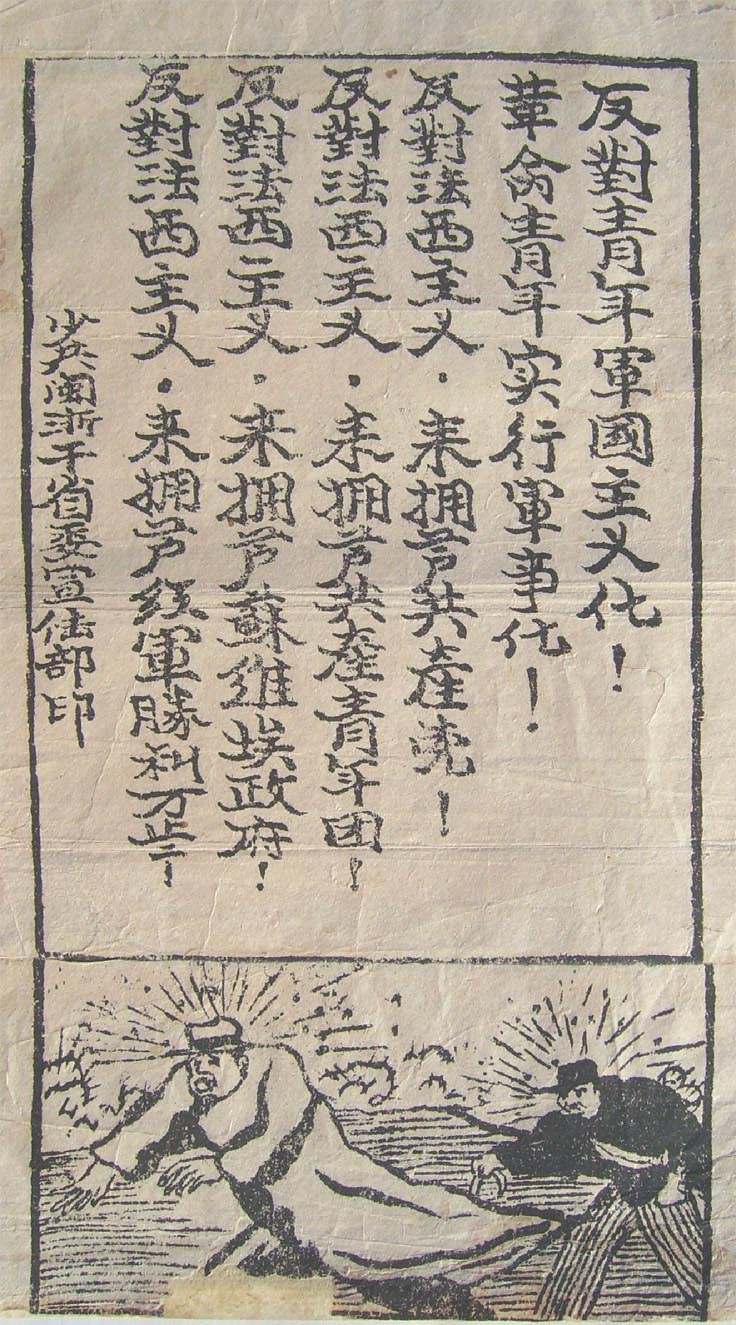 反對青年軍國主义化！
革命青年实行軍事化！
反對法西主义·来拥芦共產党！
反對法西主义·来拥芦共產青年团！
反對法西主义·来拥芦蘇維埃政府！
反對法西主义·来拥芦红軍勝利万岁！
少共闽浙干省委宣传部印